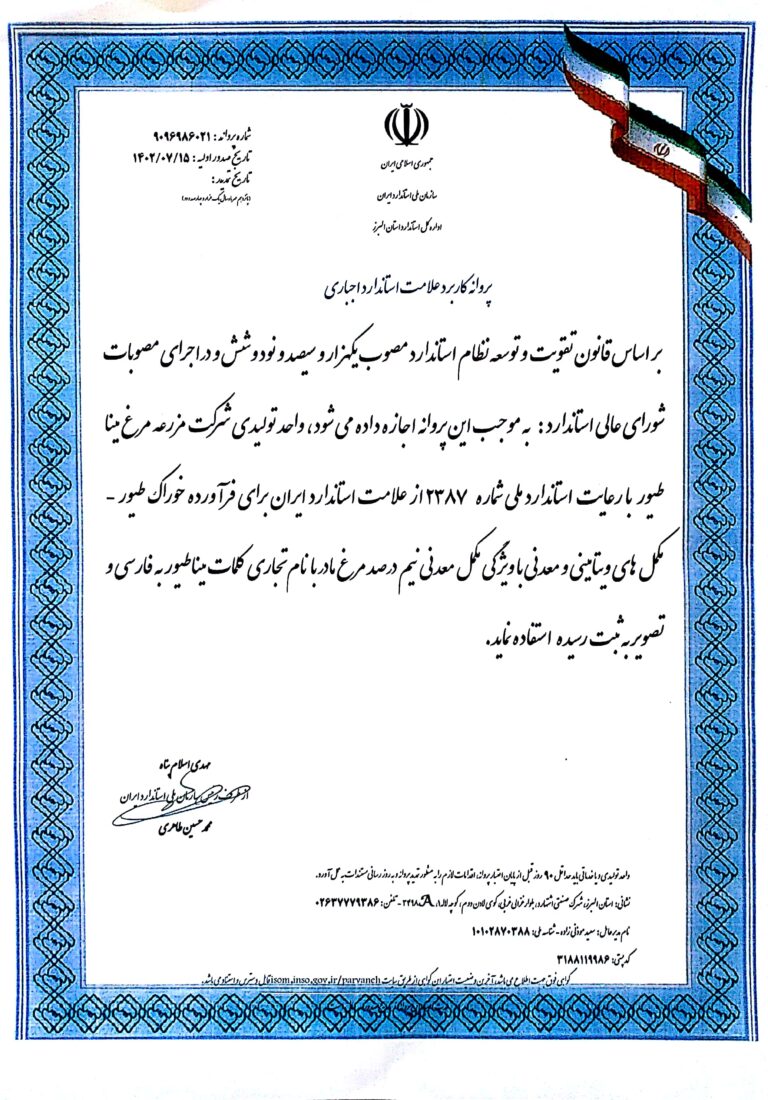 جمهوری اسلامی ایران
سازمان ملی استاندارد ایران
اداره کل استاندارد استان البرز
شماره پروانه: ۹۰۹۶۹۸۶۰۲۱
تاریخ صدور اولیه: ۱۴۰۲/۰۷/۱۵
تاریخ تمدید:
(پانزدهم مهرماه سال یک هزار و چهارصد و دو)
پروانه کاربرد علامت استاندارد اجباری
بر اساس قانون تقویت و توسعه نظام استاندارد مصوب یکهزار و سیصد و نود و شش و در اجرای مصوبات
شورای عالی استاندارد: به موجب این پروانه اجازه داده می شود، واحد تولیدی شرکت مزرعه مرغ مینا
طیور با رعایت استاندارد ملی شماره ۲۳۸۷ از علامت استاندارد ایران برای فرآورده خوراک طیور -
مکمل های ویتامینی و معدنی با ویژگی مکمل معدنی نیم درصد مرغ مادر با نام تجاری کلمات مینا طیور به فارسی و
تصویر به ثبت رسیده استفاده نماید.
مهدی اسلام پناه
از طرف رییس سازمان ملی استاندارد ایران
محمد حسین طاهری
واحد تولیدی و یا خدماتی باید حداقل ۹۰ روز قبل از پایان اعتبار پروانه، اقدامات لازم را به منظور تمدید پروانه و به روز رسانی مستندات به عمل آورد.
نشانی: استان البرز، شهرک صنعتی اشتهارد، بلوار غزالی غربی، کوی لادن دوم، کوچه لاله۱، ۲۴۹۸A - تلفن: ۰۲۶۳۷۷۷۹۳۸۶
نام مدیرعامل: سعید موذنی زاده - شناسه ملی: ۱۰۱۰۲۸۷۰۳۸۸
کد پستی: ۳۱۸۸۱۱۹۹۸۶
گواهی فوق جهت اطلاع می باشد، آخرین وضعیت اعتبار این گواهی از طریق سایت isom.inso.gov.ir/parvaneh قابل دسترس و استناد می باشد.